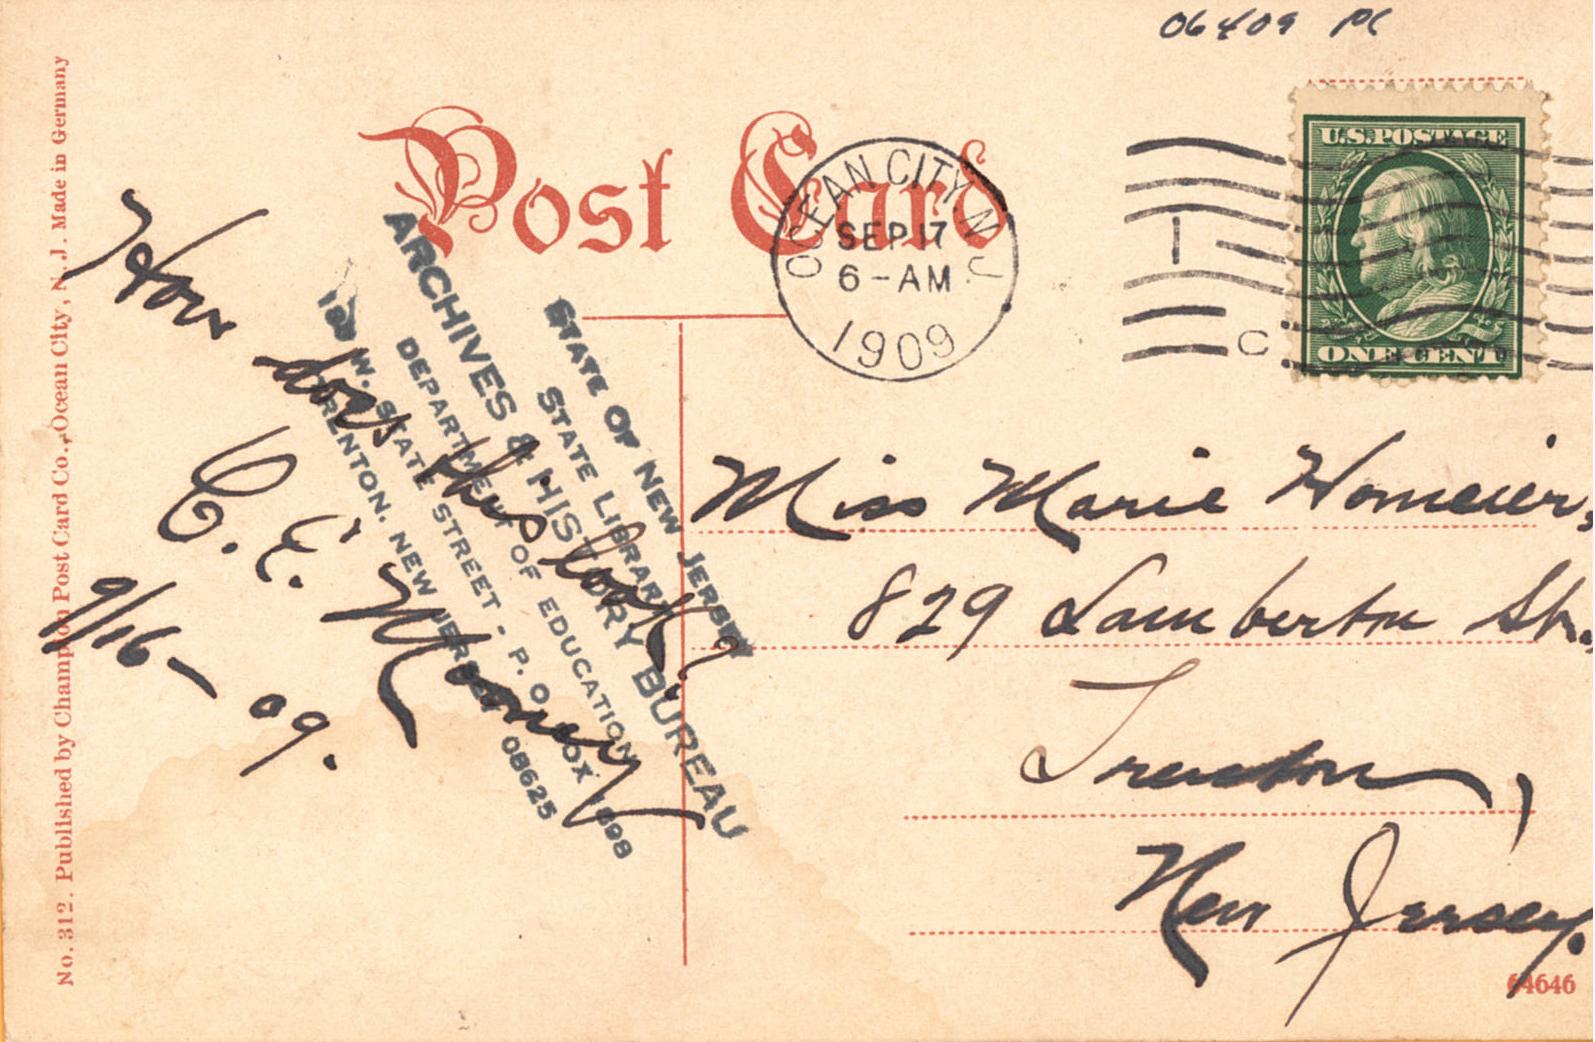 06409 PC
Post Card
U.S. POSTAGE
ONE CENT
OCEAN CITY N J
SEP 17
6-AM
1909
1
C
How does this look?
C. E. Mooney
9/16-09.
STATE OF NEW JERSEY
STATE LIBRARY
ARCHIVES & HISTORY BUREAU
DEPARTMENT OF EDUCATION
W. STATE STREET - P. O. BOX 1898
TRENTON, NEW JERSEY 08625
Miss Marie Homeier,
829 Lamberton St.,
Trenton,
New Jersey.
64646
No. 312. Published by Champion Post Card Co., Ocean City, N. J. Made in Germany